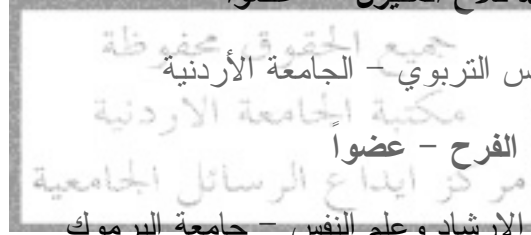 عضواً
جميع الحقوق محفوظة
التربوي – الجامعة الأردنية
مكتبة الجامعة الاردنية
الفرح – عضواً
مركز ايداع الرسائل الجامعية
الإرشاد وعلم النفس – جامعة اليرموك